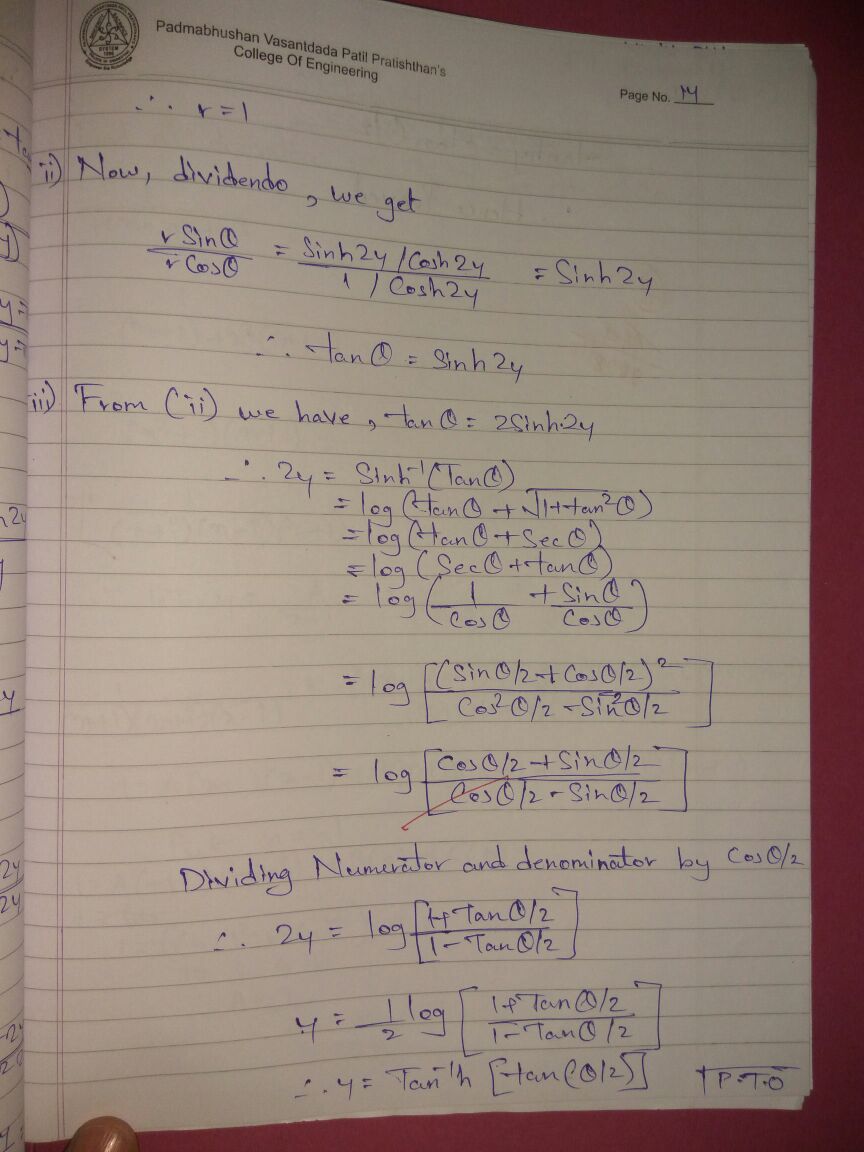 Padmabhushan Vasantdada Patil Pratishthan's
College Of Engineering
Page No. 14
∴ r = 1
ii) Now, dividendo, we get
r Sinθ / r Cosθ = Sinh2y / Cosh2y / 1 / Cosh2y = Sinh2y
∴ tanθ = Sinh2y
iii) From (ii) we have, tanθ = 2Sinh·2y
∴ 2y = Sinh⁻¹(Tanθ)
= log (tanθ + √1+tan²θ)
= log (tanθ + Secθ)
= log (Secθ + tanθ)
= log (1/Cosθ + Sinθ/Cosθ)
= log [(Sinθ/2 + Cosθ/2)² / Cos²θ/2 - Sin²θ/2]
= log [Cosθ/2 + Sinθ/2 / Cosθ/2 - Sinθ/2]
Dividing Numerator and denominator by Cosθ/2
∴ 2y = log [1+Tanθ/2 / 1-Tanθ/2]
y = 1/2 log [1+Tanθ/2 / 1-Tanθ/2]
∴ y = Tan⁻¹h [tan(θ/2)] P.T.O